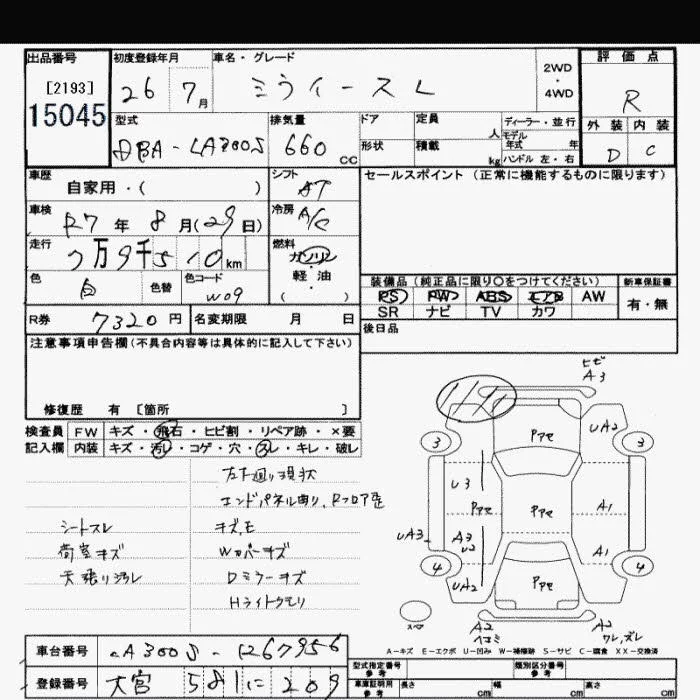 出品番号
[2193]
15045
初度登録年月
26 7月
車名・グレード
ミライース L
2WD
・
4WD
評価点
R
外装 内装
D C
型式
DBA-LA300S
排気量
660 CC
ドア
形状
定員
人
積載
kg
ディーラー・並行
モデル
年式 年
ハンドル 左・右
車歴
自家用・( )
シフト
AT
セールスポイント (正常に機能するものに限ります)
車検
R7年 8月(29日)
冷房
A/C
走行
7万9千510km
燃料
ガソリン
・
軽・油
( )
色
白
色替
色コード
W09
装備品 (純正品に限り〇をつけてください)
PS PW ABS エアB AW
SR ナビ TV カワ
新車保証書
有・無
R券 7320円
名変期限 月 日
後日品
注意事項申告欄 (不具合内容等は具体的に記入して下さい)
修復歴 有 [箇所 ]
検査員 FW キズ・飛石・ヒビ割・リペア跡・×要
記入欄 内装 キズ・汚レ・コゲ・穴・スレ・キレ・破レ
左下廻り現状
エンドパネル曲り、Rフロア歪
シートスレ
キズ、モ
荷室キズ
Wカバーキズ
天張り汚レ
Dミラーキズ
Hライトクモリ
ヒビ
A3
UA2
Pアモ
3
3
U3
Pアモ
Pアモ
A1
UA3
A3
U2
A1
4
4
UA2
Pアモ
A2
ヘコミ
A2
ワレ,ズレ
スペア
A-キズ E-エクボ U-凹み W-補修跡 S-サビ C-腐食 XX-交換済
車台番号 LA300S-1267956
登録番号 大宮 581 に 209
型式指定番号
参考
類別区分番号
参考
車庫証明用
参考
長さ cm
幅 cm
高さ cm